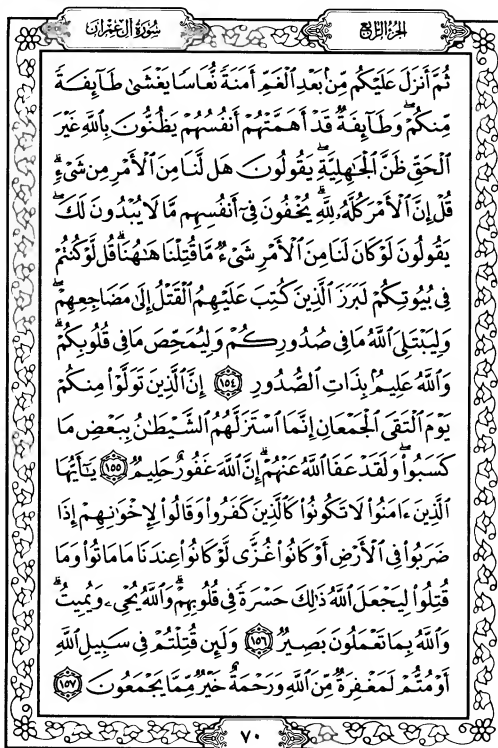 سُورَةُ آلِ عِمْرَانَ
الجُزْءُ الرَّابِعُ
ثُمَّ أَنزَلَ عَلَيْكُم مِّنۢ بَعْدِ ٱلْغَمِّ أَمَنَةً نُّعَاسًا يَغْشَىٰ طَآئِفَةً
مِّنكُمْ ۖ وَطَآئِفَةٌ قَدْ أَهَمَّتْهُمْ أَنفُسُهُمْ يَظُنُّونَ بِٱللَّهِ غَيْرَ
ٱلْحَقِّ ظَنَّ ٱلْجَٰهِلِيَّةِ ۖ يَقُولُونَ هَل لَّنَا مِنَ ٱلْأَمْرِ مِن شَىْءٍ ۗ
قُلْ إِنَّ ٱلْأَمْرَ كُلَّهُۥ لِلَّهِ ۗ يُخْفُونَ فِىٓ أَنفُسِهِم مَّا لَا يُبْدُونَ لَكَ ۖ
يَقُولُونَ لَوْ كَانَ لَنَا مِنَ ٱلْأَمْرِ شَىْءٌ مَّا قُتِلْنَا هَٰهُنَا ۗ قُل لَّوْ كُنتُمْ
فِى بُيُوتِكُمْ لَبَرَزَ ٱلَّذِينَ كُتِبَ عَلَيْهِمُ ٱلْقَتْلُ إِلَىٰ مَضَاجِعِهِمْ ۖ
وَلِيَبْتَلِىَ ٱللَّهُ مَا فِى صُدُورِكُمْ وَلِيُمَحِّصَ مَا فِى قُلُوبِكُمْ ۗ
وَٱللَّهُ عَلِيمٌۢ بِذَاتِ ٱلصُّدُورِ ١٥٤ إِنَّ ٱلَّذِينَ تَوَلَّوْا۟ مِنكُمْ
يَوْمَ ٱلْتَقَى ٱلْجَمْعَانِ إِنَّمَا ٱسْتَزَلَّهُمُ ٱلشَّيْطَٰنُ بِبَعْضِ مَا
كَسَبُوا۟ ۖ وَلَقَدْ عَفَا ٱللَّهُ عَنْهُمْ ۗ إِنَّ ٱللَّهَ غَفُورٌ حَلِيمٌ ١٥٥ يَٰٓأَيُّهَا
ٱلَّذِينَ ءَامَنُوا۟ لَا تَكُونُوا۟ كَٱلَّذِينَ كَفَرُوا۟ وَقَالُوا۟ لِإِخْوَٰنِهِمْ إِذَا
ضَرَبُوا۟ فِى ٱلْأَرْضِ أَوْ كَانُوا۟ غُزًّى لَّوْ كَانُوا۟ عِندَنَا مَا مَاتُوا۟ وَمَا
قُتِلُوا۟ لِيَجْعَلَ ٱللَّهُ ذَٰلِكَ حَسْرَةً فِى قُلُوبِهِمْ ۗ وَٱللَّهُ يُحْىِۦ وَيُمِيتُ ۗ
وَٱللَّهُ بِمَا تَعْمَلُونَ بَصِيرٌ ١٥٦ وَلَئِن قُتِلْتُمْ فِى سَبِيلِ ٱللَّهِ
أَوْ مُتُّمْ لَمَغْفِرَةٌ مِّنَ ٱللَّهِ وَرَحْمَةٌ خَيْرٌ مِّمَّا يَجْمَعُونَ ١٥٧
٧٠